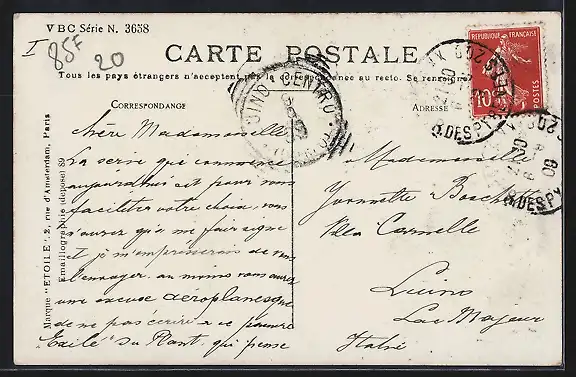 VBC Série N. 3658
I
85F
20
CARTE POSTALE
Tous les pays étrangers n'acceptent pas la correspondance au recto. Se renseigner
CORRESPONDANCE
ADRESSE
RÉPUBLIQUE FRANÇAISE
10
POSTES
CENTRO
Marque "ETOILE", 2, rue d'Amsterdam, Paris
Emaillographie (déposé) 89
Chère Mademoiselle
La série qui commence
aujourd'hui est pour vous
faciliter votre choix, vous
n'aurez qu'à me faire signe
et je m'empresserai de vous
l'envoyer. au moins vous aurez
une excuse aéroplanesque
de ne pas écrire à ce pauvre
Exilé du Plant. qui pense
Mademoiselle
Yvonnette
Villa
Luino
Lac Majeur
Italie